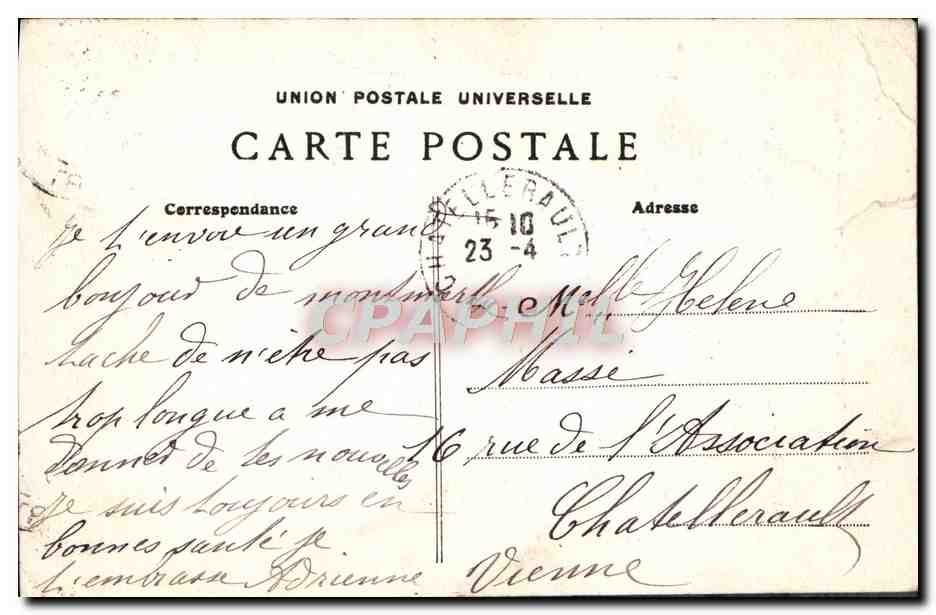 UNION POSTALE UNIVERSELLE
CARTE POSTALE
Correspondance
Adresse
CHATELLERAULT
15 10
23 -4
je t'envoie un grand
bonjour de montmartre
tache de n'etre pas
trop longue a me
donner de tes nouvelles
je suis toujours en
bonnes santé je
t'embrasse Adrienne
Melle Helene
Massé
16 rue de l'Association
Chatellerault
Vienne
CPAPHIL